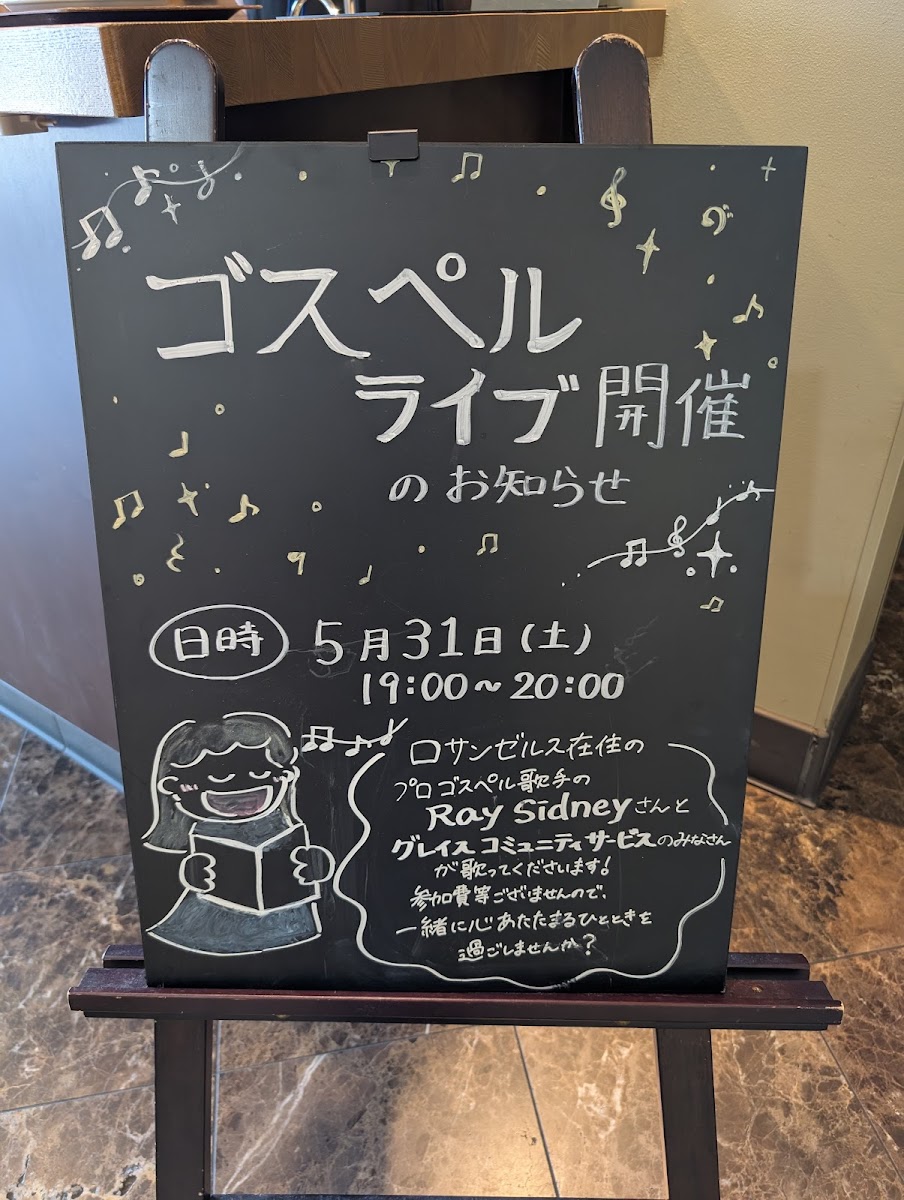 ゴスペル
ライブ開催
のお知らせ
日時 5月31日(土)
19:00~20:00
ロサンゼルス在住の
プロゴスペル歌手の
Ray Sidneyさんと
グレイスコミュニティサービスのみなさん
が歌ってくださいます!
参加費等ございませんので、
一緒に心あたたまるひとときを
過ごしませんか?